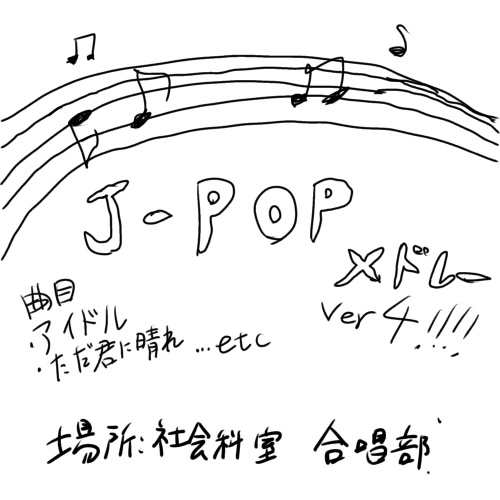 J-POP
メドレー
ver 4!!!!
曲目
・アイドル
・ただ君に晴れ ...etc
場所:社会科室 合唱部